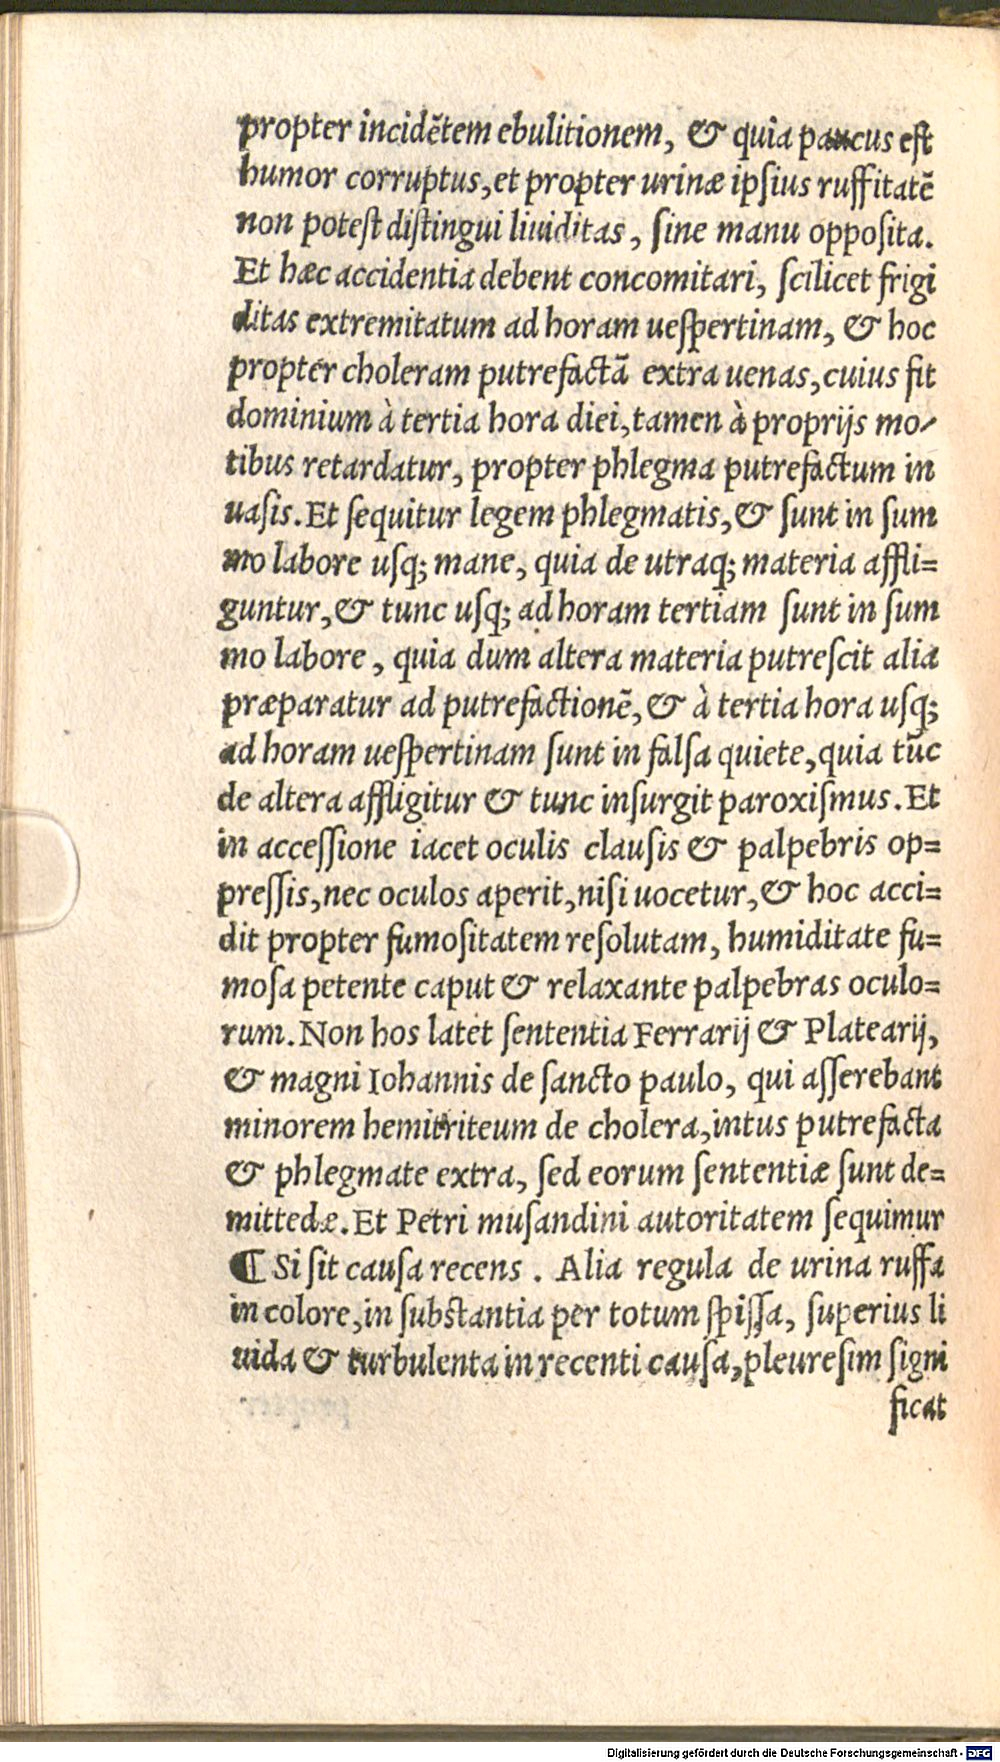 propter incidẽtem ebulitionem, & quia paucus eſt
humor corruptus, et propter urinæ ipſius ruffitatẽ
non poteſt diſtingui liuiditas, ſine manu oppoſita.
Et hæc accidentia debent concomitari, ſcilicet frigi
ditas extremitatum ad horam ueſpertinam, & hoc
propter choleram putrefactã extra uenas, cuius fit
dominium à tertia hora diei, tamen à proprijs mo-
tibus retardatur, propter phlegma putrefactum in
uaſis. Et ſequitur legem phlegmatis, & ſunt in ſum
mo labore uſq; mane, quia de utraq; materia affli=
guntur, & tunc uſq; ad horam tertiam ſunt in ſum
mo labore, quia dum altera materia putreſcit alia
præparatur ad putrefactionẽ, & à tertia hora uſq;
ad horam ueſpertinam ſunt in falſa quiete, quia tũc
de altera affligitur & tunc inſurgit paroxiſmus. Et
in acceſſione iacet oculis clauſis & palpebris op=
preſſis, nec oculos aperit, niſi uocetur, & hoc acci=
dit propter fumoſitatem reſolutam, humiditate fu=
moſa petente caput & relaxante palpebras oculo=
rum. Non hos latet ſententia Ferrarij & Platearij,
& magni Iohannis de ſancto paulo, qui aſſerebant
minorem hemitriteum de cholera, intus putrefacta
& phlegmate extra, ſed eorum ſententiæ ſunt de=
mittedæ. Et Petri muſandini autoritatem ſequimur
¶ Si ſit cauſa recens. Alia regula de urina ruffa
in colore, in ſubſtantia per totum ſpiſſa, ſuperius li
uida & turbulenta in recenti cauſa, pleureſim ſigni
ficat
Digitalisierung gefördert durch die Deutsche Forschungsgemeinschaft - DFG